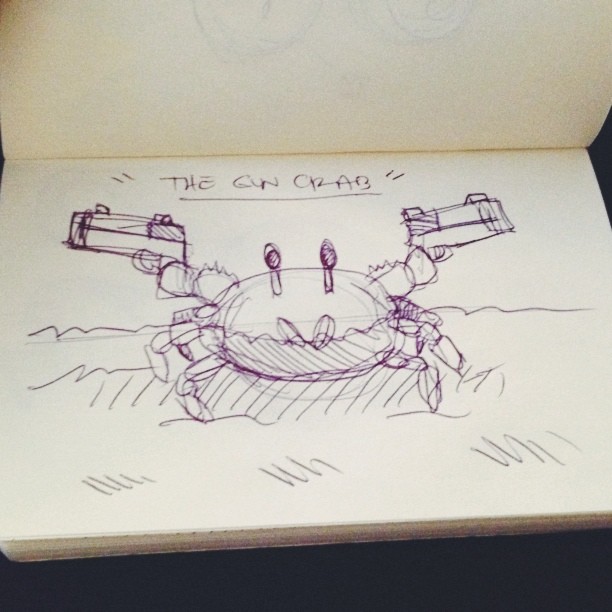 "THE GUN CRAB"